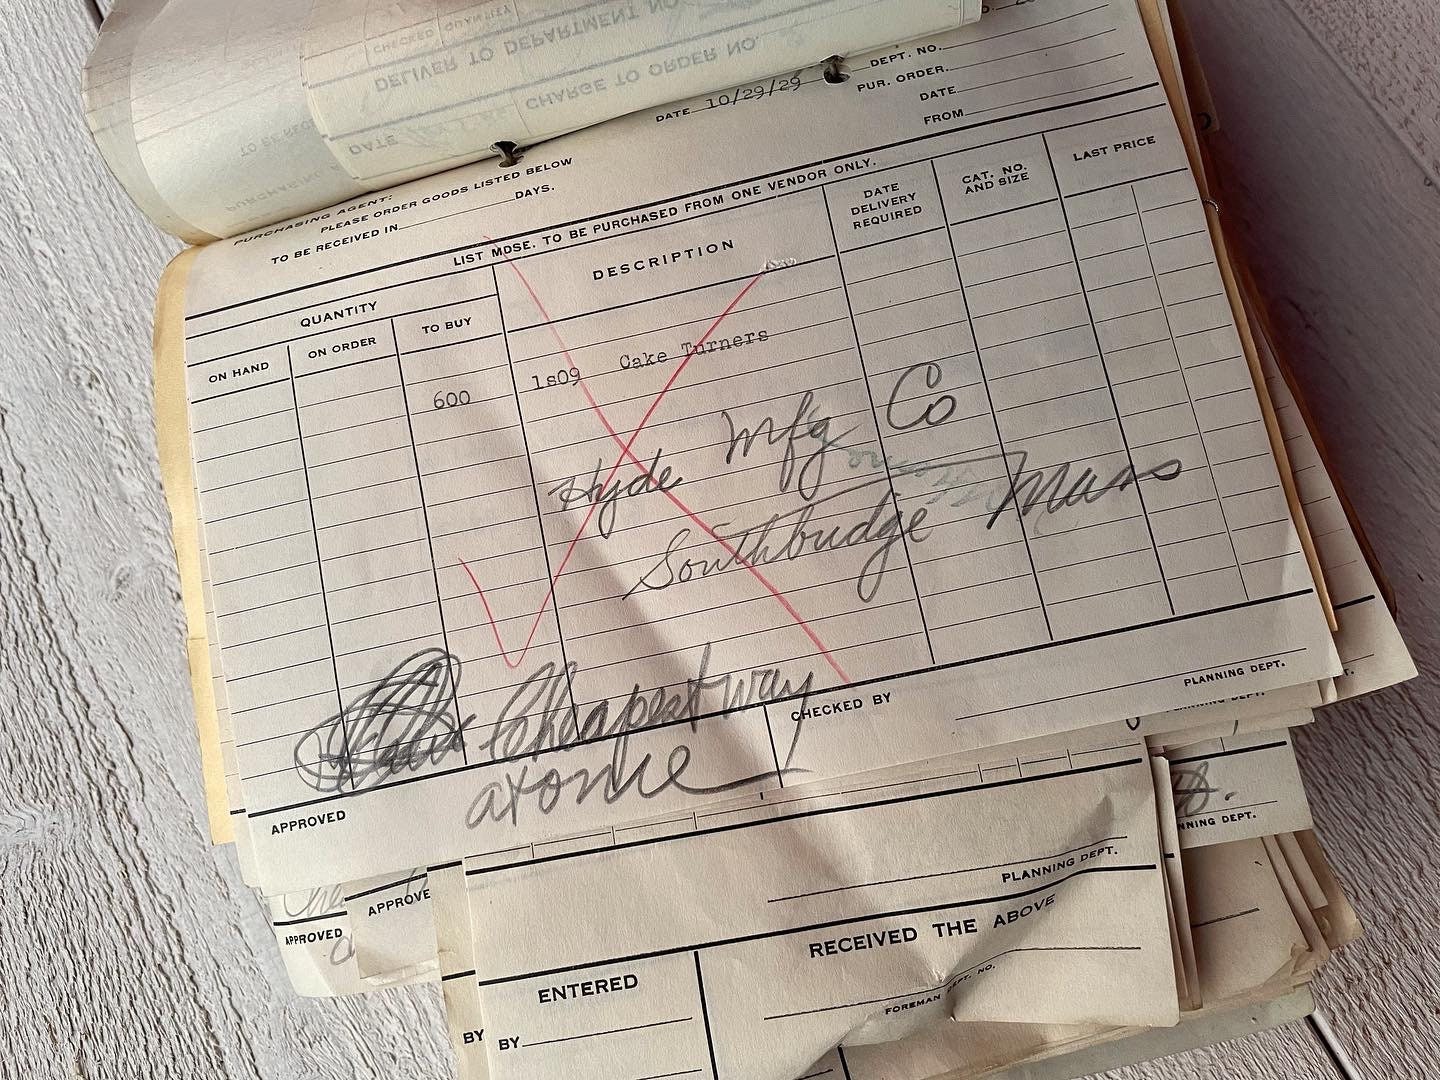 CHECKED QUANTITY
DELIVER TO DEPARTMENT NO.
CHARGE TO ORDER NO.
DATE
DATE 10/29/29
DEPT. NO.
PUR. ORDER.
DATE
FROM
PURCHASING AGENT:
PLEASE ORDER GOODS LISTED BELOW
TO BE RECEIVED IN DAYS.
LIST MDSE. TO BE PURCHASED FROM ONE VENDOR ONLY.
QUANTITY
DESCRIPTION
DATE DELIVERY REQUIRED
CAT. NO. AND SIZE
LAST PRICE
ON HAND
ON ORDER
TO BUY
600 1s09 Cake Turners
Hyde Mfg Co
Southbridge Mass
Cheapest way
at once
APPROVED
CHECKED BY
PLANNING DEPT.
PLANNING DEPT.
NNING DEPT.
APPROVE
APPROVED
PLANNING DEPT.
RECEIVED THE ABOVE
ENTERED
FOREMAN DEPT. NO.
BY
BY